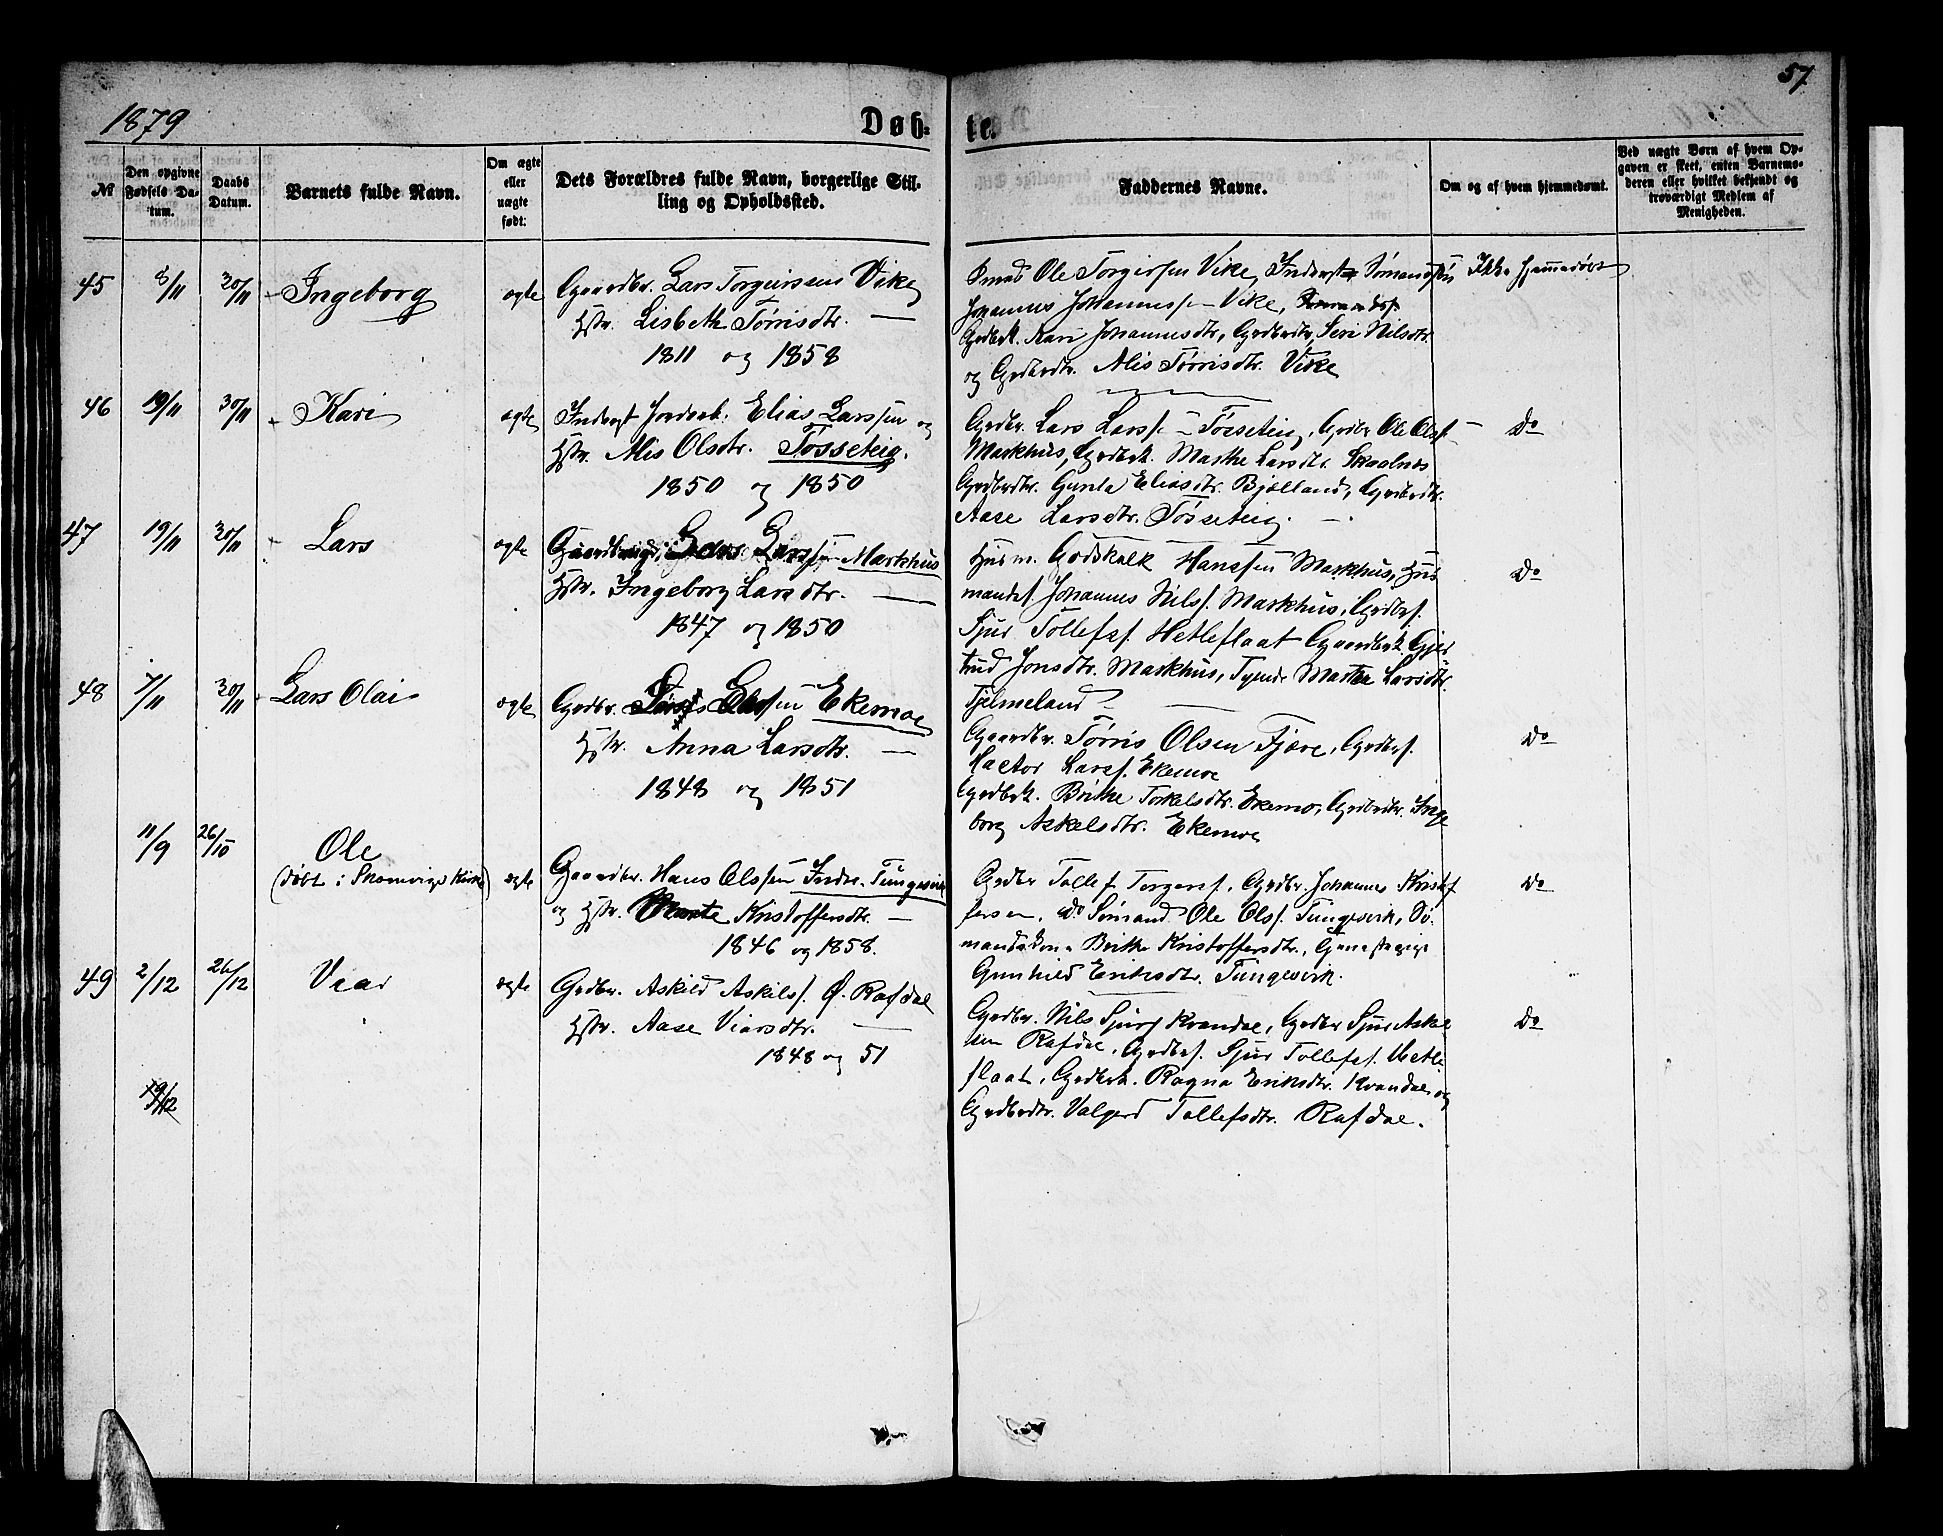 57
1879
Døb-
te.
№
Den opgivne Fødsels Da-tum.
Daabs Datum.
Barnets fulde Navn.
Om ægte eller uægte født.
Dets Forældres fulde Navn, borgerlige Stil-
ling og Opholdssted.
Faddernes Navne.
Om og af hvem hjemmedøbt.
Ved uægte Børn af hvem Op-
gaven er skeet, enten Barnemo-
deren eller hvilket bekjendt og
troværdigt Medlem af
Menigheden.
45 8/11 30/11 Ingeborg ægte Gaardbr. Lars Torgeirssen Vike
Hstr. Lisbeth Tørrisdtr. —
1811 og 1858
Ole Torgirssen Vike, Inderst Sømand
Johannes Johanness. Vike,
Grdbrk. Kari Johannesdtr, Grdbrdtr. Seri Nilsdtr.
og Grdbrdtr. Alis Tørrisdtr. Vike
Ikke hjemmedøbt
46 19/11 30/11 Kari ægte Inderst Jordarb. Elias Larssen og
Hstr. Alis Olsdtr. Tøsseteig.
1850 og 1850
Grdbr. Lars Larss. Tøsseteig, Grdbr Ole Olss.
Markhus, Grdbrk. Marthe Larsdtr. Skaalnes
Grdbrdtr. Gunla Eliasdtr. Bjælland, Grdbrdtr.
Aase Larsdtr. Tøsseteig. —
Do
47 19/11 30/11 Lars ægte Gaardbruger Lars Larssen Markhus
Hstr. Ingeborg Larsdtr. —
1847 og 1850
Husm. Godskalk Hanssen Markhus, Hus
mands. Johannes Nilss. Markhus, Grdbrs.
Sjur Tollefss. Hetleflaat Gaardbrk. Gjer
trud Jonsdtr. Markhus, Tjende Martha Larsdtr.
Fjelmeland —
Do
48 7/11 30/11 Lars Olai ægte Grdbr. Olssen Ekemoe
Hstr. Anna Larsdtr. —
1848 og 1851
Gaardbr. Tørris Olsen Fjære, Grdbrs.
Hactor Larss. Ekemoe
Grdbrk. Brithe Torkelsdtr. Ekemo, Grdbrdtr. Inge
borg Askelsdtr. Ekemoe
Do
11/9 26/10 Ole
(døbt i Kirke) ægte Gaardbr. Hans Olssen Indre Tungesvik
og Hstr. Kristoffersdtr. —
1846 og 1858.
Grdbr Tollef Torgerss., Grdbr. Johannes Kristof
fersen, Do Sømand Ole Olss. Tungesvik, Sø
mandskone Brithe Kristoffersdtr.,
Gunhild Eriksdtr. Tungesvik.
Do
49 2/12 26/12 Viar ægte Grdbr. Askild Askilss. Ø. Rafdal
Hstr. Aase Viarsdtr. —
1848 og 51
Grdbr. Nils Sjurs. Kvandal, Grdbr Sjur Askel
sen Rafdal, Grdbrs. Sjur Tollefss. Hetle-
flaat, Grdbrk. Ragna Eriksdtr. Kvandal og
Grdbrdtr. Valgerd Tollefsdtr. Rafdal.
Do
19/12